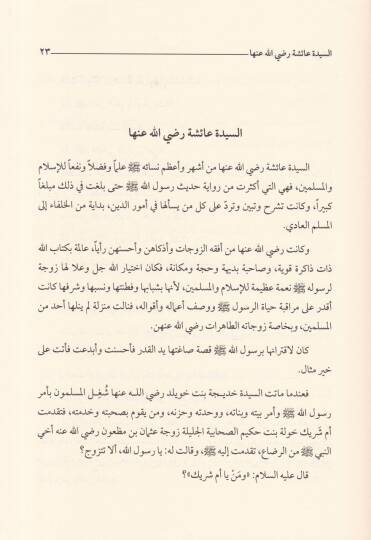 السيدة عائشة رضي الله عنها ٢٣
السيدة عائشة رضي الله عنها
السيدة عائشة رضي الله عنها من أشهر وأعظم نسائه ﷺ علماً وفضلاً ونفعاً للإسلام
والمسلمين، فهي التي أكثرت من رواية حديث رسول الله ﷺ حتى بلغت في ذلك مبلغاً
كبيراً، وكانت تشرح وتبين وتردّ على كل من يسألها في أمور الدين، بداية من الخلفاء إلى
المسلم العادي.
وكانت رضي الله عنها من أفقه الزوجات وأذكاهن وأحسنهن رأياً، عالمة بكتاب الله
ذات ذاكرة قوية، وصاحبة بديهة وحجة ومكانة، فكان اختيار الله جل وعلا لها زوجة
لرسوله ﷺ نعمة عظيمة للإسلام والمسلمين، لأنها بشبابها وفطنتها ونسبها وشرفها كانت
أقدر على مراقبة حياة الرسول ﷺ ووصف أعماله وأقواله، فنالت منزلة لم ينلها أحد من
المسلمين، وبخاصة زوجاته الطاهرات رضي الله عنهن.
كان لاقترانها برسول الله ﷺ قصة صاغتها يد القدر فأحسنت وأبدعت فأتت على
خير مثال.
فعندما ماتت السيدة خديجة بنت خويلد رضي الله عنها شُغِل المسلمون بأمر
رسول الله ﷺ وأمر بيته وبناته، ووحدته وحزنه، ومن يقوم بصحبته وخدمته، فتقدمت
أم شَريك خولة بنت حكيم الصحابية الجليلة زوجة عثمان بن مظعون رضي الله عنه أخي
النبي ﷺ من الرضاع، تقدمت إليه ﷺ، وقالت له: يا رسول الله، ألا تتزوج؟
قال عليه السلام: «ومَنْ يا أم شريك»؟